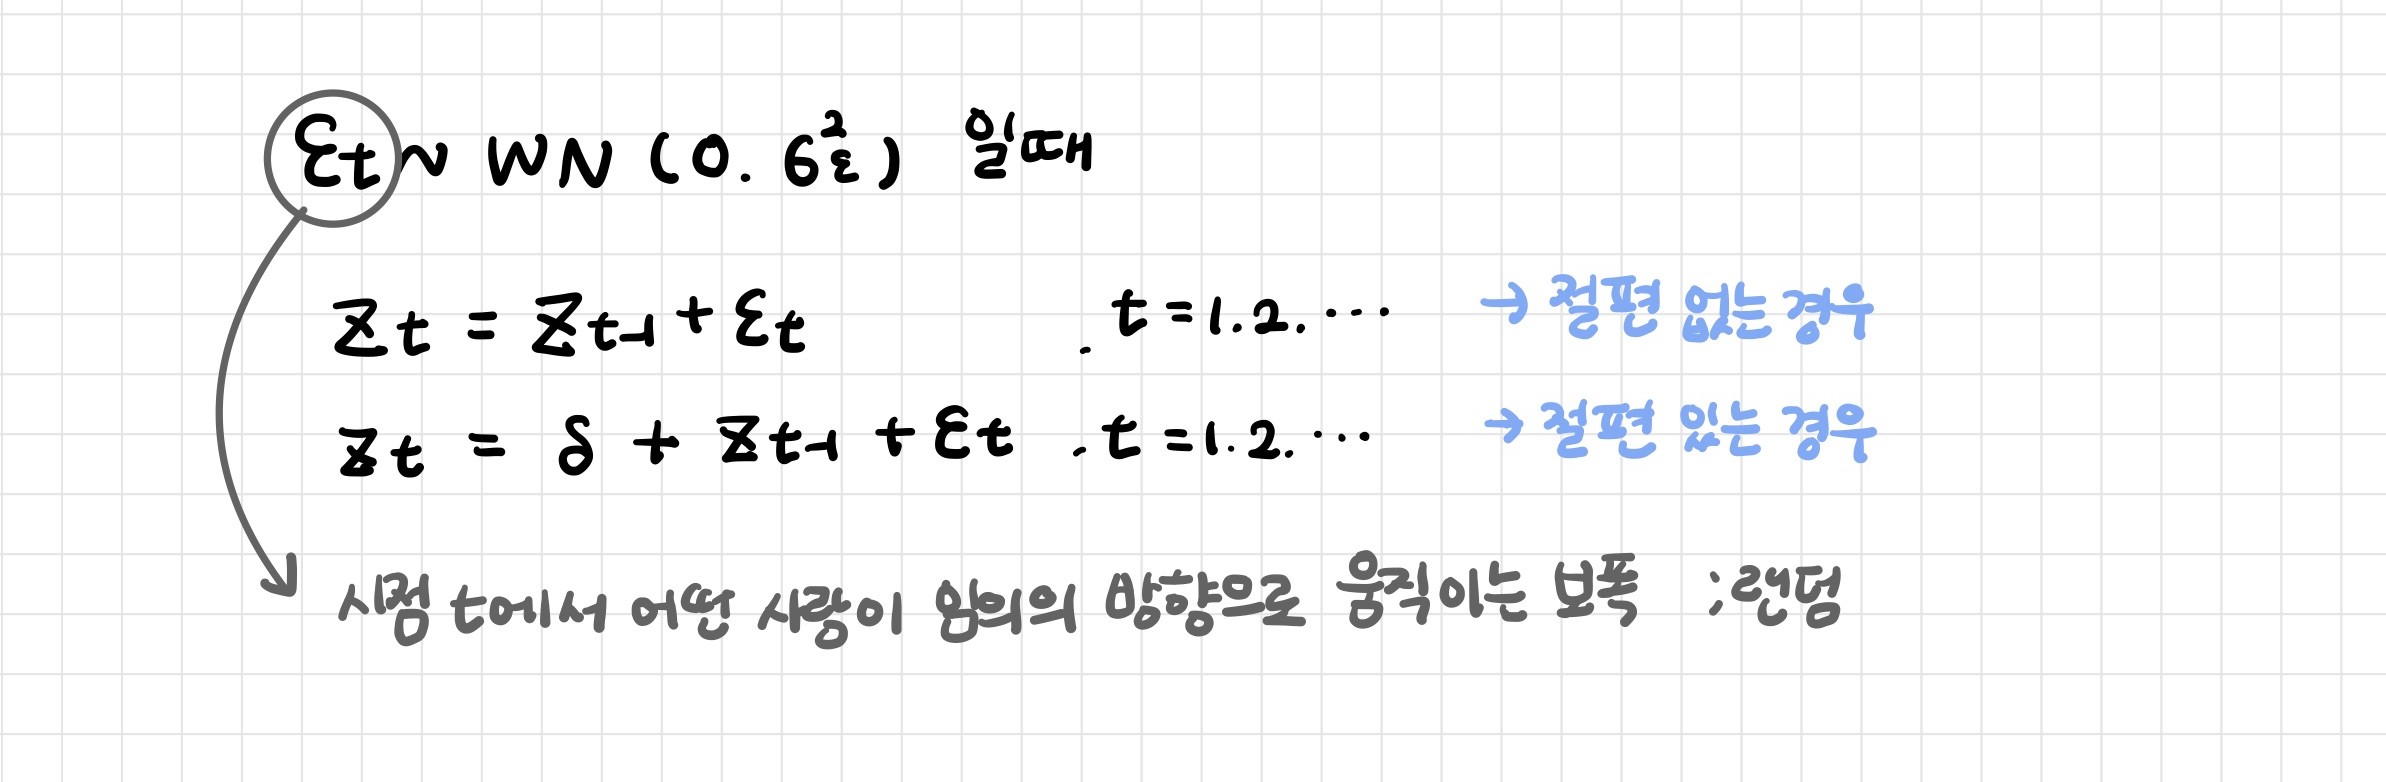 εt ~ WN (0. σ²ε) 일때
Zt = Zt-1 + εt . t = 1. 2. ··· → 절편 없는 경우
Zt = δ + Zt-1 + εt . t = 1. 2. ··· → 절편 있는 경우
시점 t에서 어떤 사람이 임의의 방향으로 움직이는 보폭 ; 랜덤